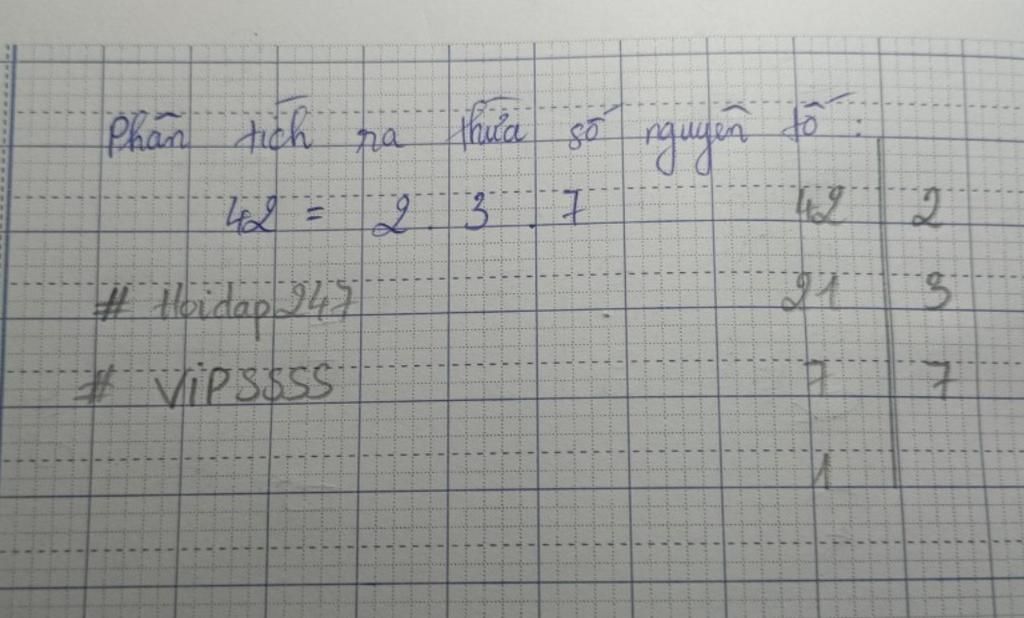 Phân tích ra thừa số nguyên tố :
42 = 2 . 3 . 7
42 2
# Hoidap247
21 3
# ViPSSSS
7 7
1